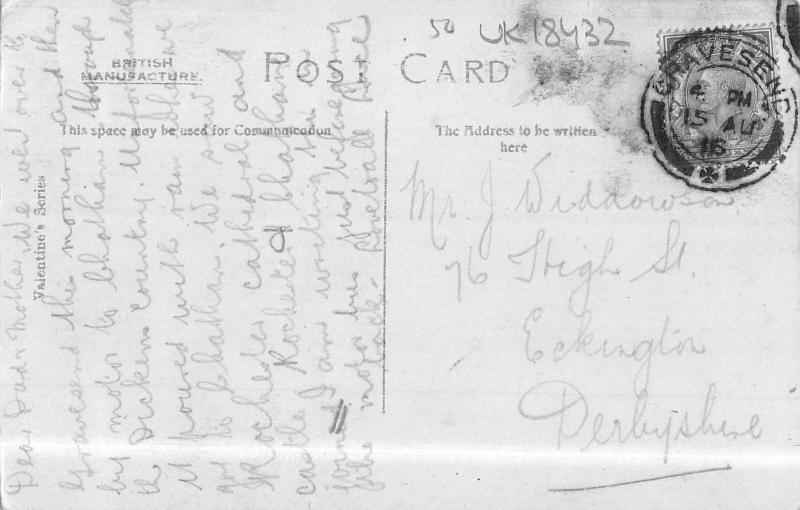 50 UK18432
BRITISH
MANUFACTURE.
POST CARD
This space may be used for Communication
The Address to be written
here
Valentine's Series
GRAVESEND
PM
15 AU
16
Dear Dad & Mother, We went over to
Gravesend this morning and then
by moto to Chatham through
the Dickens country. Unfortunately
it poured with rain when we
got to Chatham. We saw
Rochester cathedral and
castle Rochester Chatham
I am writing this on
the moto bus just before going
back. Love to all
Mr. J. Widdowson
76 High St.
Eckington
Derbyshire